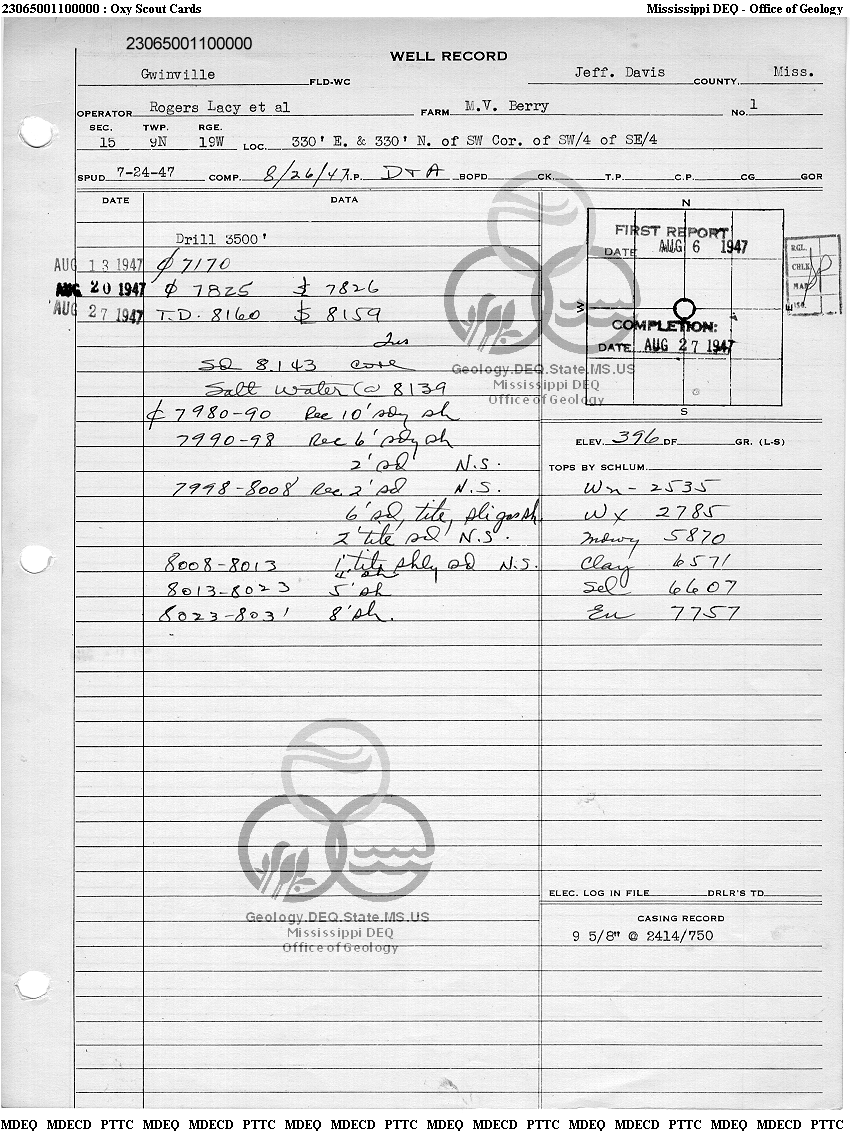 23065001100000 : Oxy Scout Cards Mississippi DEQ - Office of Geology
23065001100000
WELL RECORD
Gwinville FLD-WC Jeff. Davis COUNTY, Miss.
OPERATOR Rogers Lacy et al FARM M.V. Berry No. 1
SEC. TWP. RGE.
15 9N 19W LOC. 330' E. & 330' N. of SW Cor. of SW/4 of SE/4
SPUD 7-24-47 COMP. 8/26/47 I.P. D+A BOPD CK. T.P. C.P. CG GOR
DATE DATA
N
Drill 3500'
FIRST REPORT
DATE AUG 6 1947
RGL.
CHLK
MAP
AUG 13 1947 ₵ 7170
AUG 20 1947 ₵ 7825 $ 7826
AUG 27 1947 T.D. 8160 $ 8159
W E
COMPLETION:
DATE AUG 27 1947
Sd 8143 core
Salt Water @ 8139
Geology.DEQ.State.MS.US
Mississippi DEQ
Office of Geology
S
₵ 7980-90 Rec 10' sdy sh
7990-98 Rec 6' sdy sh
2' sd N.S.
7998-8008 Rec 2' sd N.S.
6' sd, tite, sh.
2' tite sd N.S.
8008-8013 1' tite shly sd N.S.
4' sh
8013-8023 5' sh
8023-8031 8' sh.
ELEV. 396 DF GR. (L-S)
TOPS BY SCHLUM.
Wn - 2535
WX 2785
mdwy 5870
Clay 6571
Sel 6607
Eu 7757
Geology.DEQ.State.MS.US
Mississippi DEQ
Office of Geology
ELEC. LOG IN FILE DRLR'S TD
CASING RECORD
9 5/8" @ 2414/750
MDEQ MDECD PTTC MDEQ MDECD PTTC MDEQ MDECD PTTC MDEQ MDECD PTTC MDEQ MDECD PTTC MDEQ MDECD PTTC